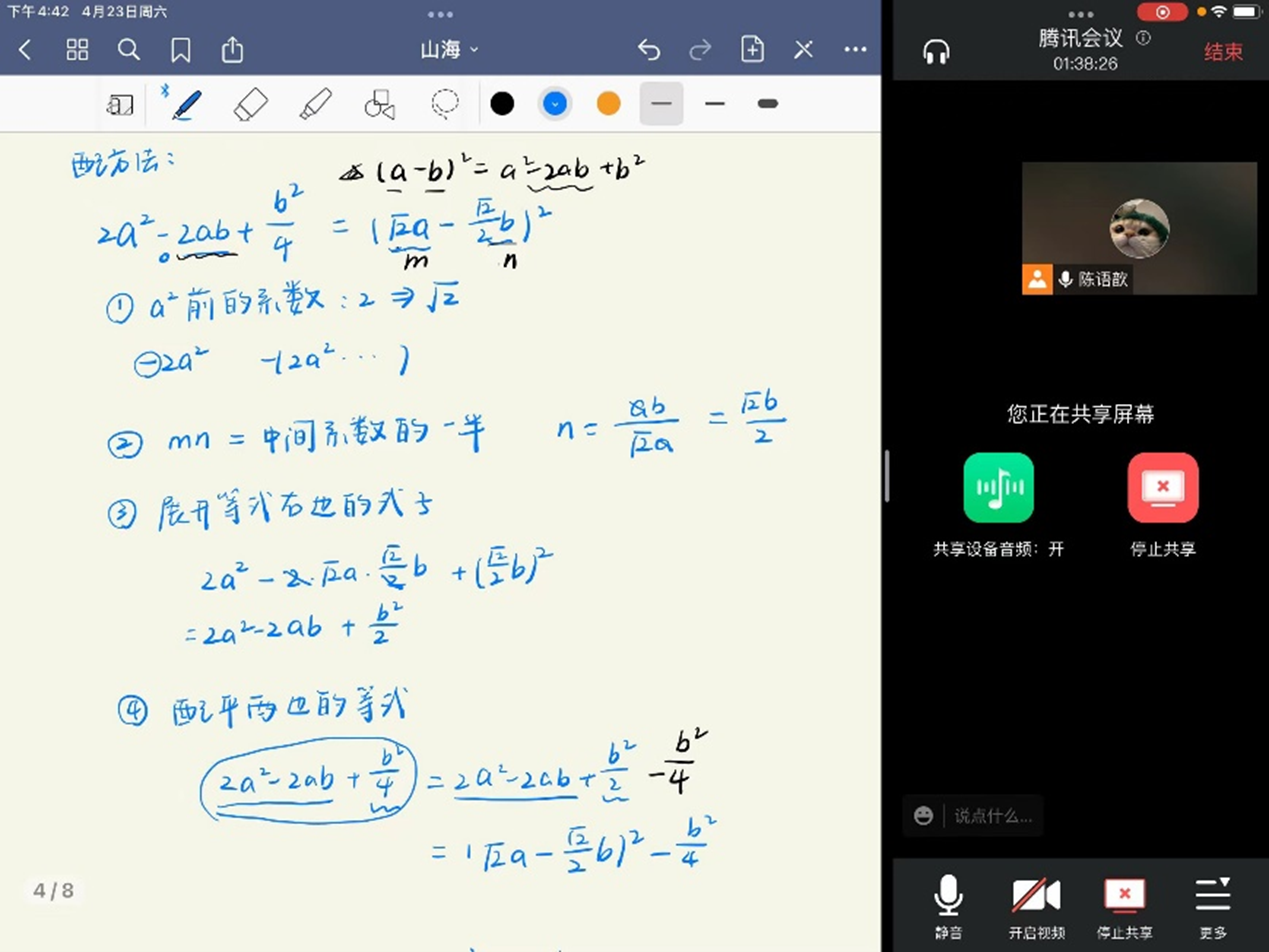 下午4:42 4月23日周六
山海
配方法：
(a-b)² = a²-2ab+b²
2a²-2ab+b²/4 = (√2a - √2/2 b)²
m n
① a²前的系数：2 ⇒ √2
-2a² -(2a²··· )
② mn = 中间系数的一半 n = ab/√2a = √2b/2
③ 展开等式右边的式子
2a² - 2·√2a·√2/2 b + (√2/2 b)²
= 2a²-2ab + b²/2
④ 配平两边的等式
2a²-2ab + b²/4 = 2a²-2ab + b²/2 - b²/4
= (√2a - √2/2 b)² - b²/4
4 / 8
腾讯会议
01:38:26
结束
陈语歆
您正在共享屏幕
共享设备音频：开
停止共享
说点什么...
静音
开启视频
停止共享
更多